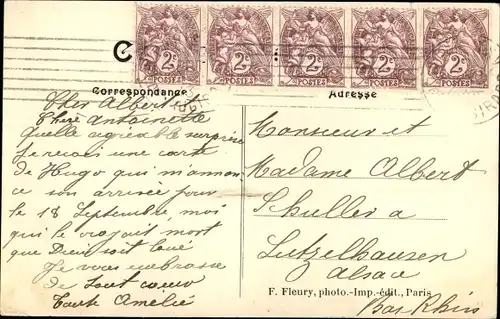 2c 2c 2c 2c 2c
POSTES POSTES POSTES POSTES POSTES
Correspondance
Adresse
Cher Albert et
Chère Antoinette
Quelle agréable surprise
Je reçois une carte
de Hugo qui m'annon
ce son arrivée pour
le 18 Septembre, moi
qui le croyait mort
que Dieu soit loué
Je vous embrasse
de tout coeur
Tante Amélie
Monsieur et
Madame Albert
Schuller a
Lutzelhausen
Alsace
F. Fleury, photo.-Imp.-édit., Paris
Bas Rhin